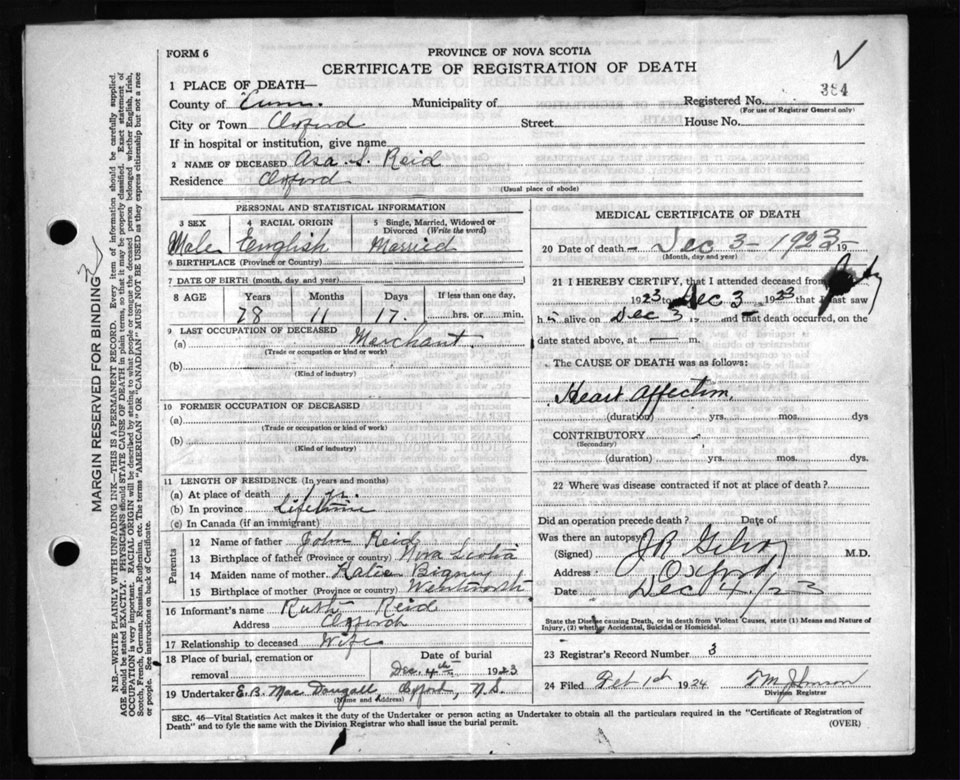 FORM 6
PROVINCE OF NOVA SCOTIA
CERTIFICATE OF REGISTRATION OF DEATH
384
1 PLACE OF DEATH—
County of Cum. Municipality of Registered No.
(For use of Registrar General only)
City or Town Oxford Street House No.
If in hospital or institution, give name
2 NAME OF DECEASED Asa S. Reid
Residence Oxford
(Usual place of abode)
PERSONAL AND STATISTICAL INFORMATION
3 SEX 4 RACIAL ORIGIN 5 Single, Married, Widowed or Divorced (Write the word)
Male English Married
6 BIRTHPLACE (Province or Country)
7 DATE OF BIRTH (month, day, and year)
8 AGE Years Months Days If less than one day,
78 11 17. hrs. or min.
9 LAST OCCUPATION OF DECEASED
(a) Merchant.
(Trade or occupation or kind or work)
(b)
(Kind of industry)
10 FORMER OCCUPATION OF DECEASED
(a)
(Trade or occupation or kind or work)
(b)
(Kind of industry)
11 LENGTH OF RESIDENCE (In years and months)
(a) At place of death
(b) In province Lifetime
(c) In Canada (if an immigrant)
Parents
12 Name of father John Reid
13 Birthplace of father (Province or country) Nova Scotia
14 Maiden name of mother. Katie Bigney
15 Birthplace of mother (Province or country) Wentworth
16 Informant's name Ruth Reid
Address Oxford
17 Relationship to deceased Wife
18 Place of burial, cremation or removal Date of burial
Dec. 4th 1923
19 Undertaker E.B. Mac Dougall, Oxford, N.S.
(Name and Address)
MEDICAL CERTIFICATE OF DEATH
20 Date of death— Dec 3 - 1923 19
(Month, day and year)
21 I HEREBY CERTIFY, that I attended deceased from
1923 to Dec 3 1923 that I last saw
h alive on Dec 3 19 and that death occurred, on the
date stated above, at — m.
The CAUSE OF DEATH was as follows:
Heart Affection.
(duration) yrs. mos. dys
CONTRIBUTORY
(Secondary)
(duration) yrs. mos. dys.
22 Where was disease contracted if not at place of death?
Did an operation precede death? Date of
Was there an autopsy?
(Signed) M.D.
Address Oxford
Date Dec 4/23
State the Disease causing Death, or in death from Violent Causes, state (1) Means and Nature of Injury, (2) whether Accidental, Suicidal or Homicidal.
23 Registrar's Record Number 3
24 Filed Feb 1st 1924 T M Johnson
Division Registrar
SEC. 46—Vital Statistics Act makes it the duty of the Undertaker or person acting as Undertaker to obtain all the particulars required in the "Certificate of Registration of
Death" and to fyle the same with the Division Registrar who shall issue the burial permit. (OVER)
MARGIN RESERVED FOR BINDING
N.B.—WRITE PLAINLY WITH UNFADING INK—THIS IS A PERMANENT RECORD. Every item of information should be carefully supplied.
AGE should be stated EXACTLY. PHYSICIANS should STATE CAUSE OF DEATH in plain terms, so that it may be properly classified. Exact statement of
OCCUPATION is very important. RACIAL ORIGIN will be described by stating to what people or tongue the deceased person belonged whether English, Irish,
Scotch, French, German, Russian, Ruthenian, etc. The terms "AMERICAN" OR "CANADIAN" MUST NOT BE USED as they express citizenship but not a race
or people. See instructions on back of Certificate.